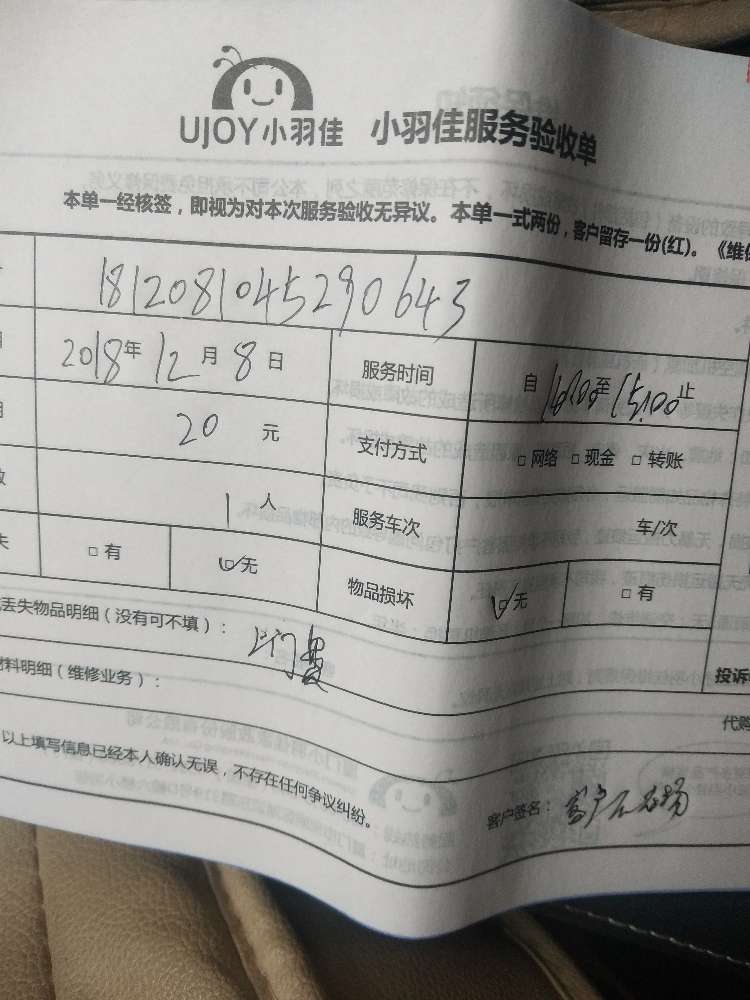 UJOY小羽佳 小羽佳服务验收单
本单一经核签，即视为对本次服务验收无异议。本单一式两份，客户留存一份(红)。《维保
181208104529 0643
2018年12月8日 服务时间 自 至15:00止
20元 支付方式 □网络 □现金 □转账
1人 服务车次 车/次
失 □有 □无 物品损坏 □无 □有
丢失物品明细（没有可不填）： 上门费
材料明细（维修业务）：
投诉
代购
以上填写信息已经本人确认无误，不存在任何争议纠纷。
客户签名： 客户不在场